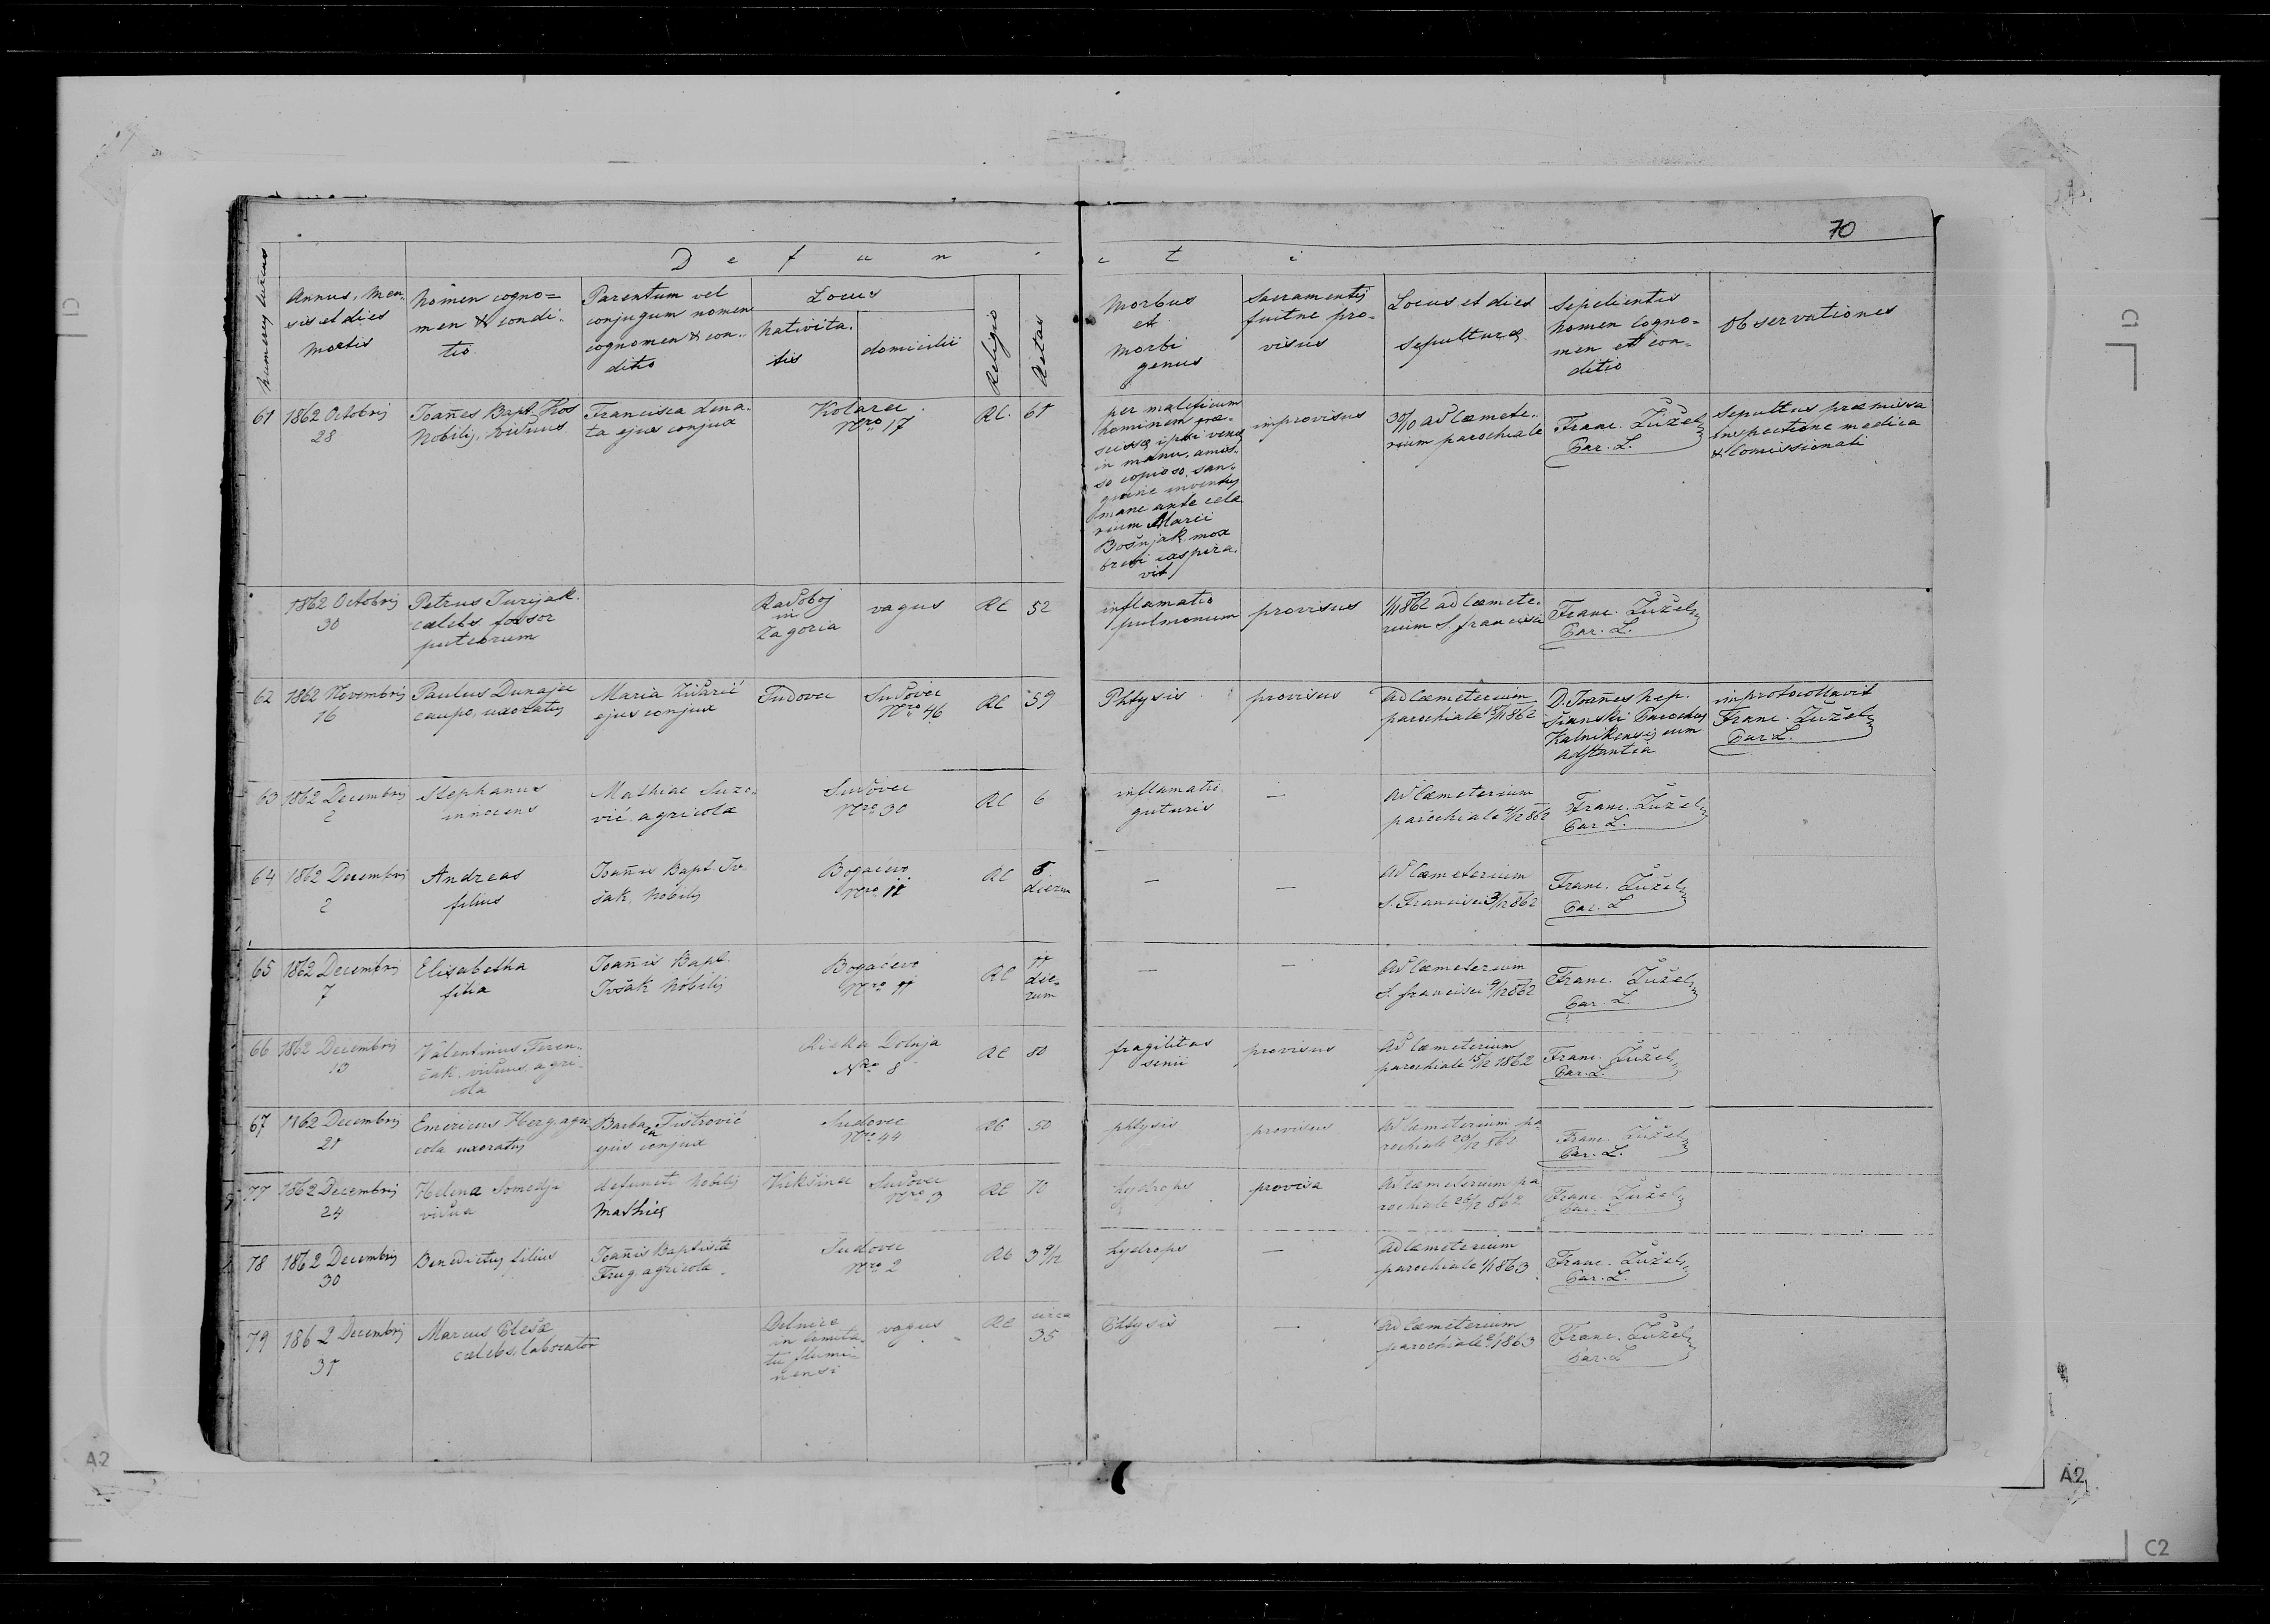 70
D e f u n c t i
Numerus currens
Annus, men-
sis et dies
mortis
Nomen cogno=
men & condi-
tio
Parentum vel
conjugum nomen
cognomen & con-
ditio
Locus
nativita-
tis
domicilii
Religio
Aetas
Morbus
et
Morbi
genus
Sacramentis
fuitne pro-
visus
Locus et dies
Sepulturæ
Sepelientis
nomen cogno-
men et con-
ditio
Observationes
61
1862 Octobris
28
Joañes Bapt. Kos
Nobilis, viduus
Francisca dena-
ta ejus conjux
Kolarec
Nro 17
RC.
61
per maleficum
hominem præ-
scissæ ipsi venæ
in manu, amis-
so copioso san-
guine inventus
mane ante cela
rium Marci
Bošnjak mox
brevi exspira-
vit
improvisus
30/10 ad cœmete-
rium parochiale
Franc. Žužel
Par. L.
Sepultus præmissa
inspectione medica
& Comissionali
1862 Octobris
30
Petrus Jurijak
cælebs fossor
puteorum
Radoboj
in
Zagoria
vagus
RC
52
inflamatio
pulmonum
provisus
1/11 862 ad cœmete-
rium S. francisci
Franc. Žužel
Par. L.
62
1862 Novembris
16
Paulus Dunajec
caupo, uxoratus
Maria Židarić
ejus conjux
Sudovec
Sudovec
Nro 46
RC
59
Phtysis
provisus
ad Cœmeterium
parochiale 18/11 862
D. Joañes Nep.
Šianski Parochus
Kalnikensis cum
adstantia
inprotocollavit
Franc. Žužel
Par L.
63
1862 Decembris
2
Stephanus
innocens
Mathiae Suzo-
vić agricola
Sudovec
Nro 30
RC
6
inflamatio
guturis
—
ad Cœmeterium
parochiale 4/12 862
Franc. Žužel
Par L.
64
1862 Decembris
2
Andreas
filius
Joañis Bapt. Iv-
šak, Nobilis
Bogačevo
Nro 11
RC
5
dierum
—
—
ad Cœmeterium
S. Francisci 3/12 862
Franc. Žužel
Par. L
65
1862 Decembris
7
Elisabetha
filia
Joañis Bapt.
Ivšak Nobilis
Bogačevo
Nro 11
RC
11
die-
rum
—
—
ad Cœmeterium
S. francisci 9/12 862
Franc. Žužel
Par. L.
66
1862 Decembris
13
Valentinus Feren-
čak, viduus, agri-
cola
Rieka Dolnja
Nro 8
RC
80
fragilitas
senii
provisus
ad Cœmeterium
parochiale 15/12 1862
Franc. Žužel
Par. L.
67
1862 Decembris
21
Emericus Herg agri
cola uxoratus
Barbara Fistrović
ejus conjux
Sudovec
Nro 44
RC
50
phtysis
provisus
ad Cœmeterium pa
rochiale 23/12 862
Franc. Žužel
Par. L.
77
1862 Decembris
24
Helena Somedje
vidua
defuncti Nobilis
Mathiæ
Vukšinec
Sudovec
Nro 3
RC
70
hydrops
provisa
ad Cœmeterium pa
rochiale 26/12 862
Franc. Žužel
Par. L
78
1862 Decembris
30
Benedictus filius
Joañis Baptista
Frug agricola
Sudovec
Nro 2
RC
3 9/12
hydrops
—
ad Cœmeterium
parochiale 1/1 863
Franc. Žužel
Par. L.
79
1862 Decembris
31
Marcus Pleše
cælebs, laborator
Delnice
in Comita-
tu flumi-
nensi
vagus
RC
circa
35
Phtysis
—
ad Cœmeterium
parochiale 2/1 863
Franc. Žužel
Par. L
A2
A2
C1
C2